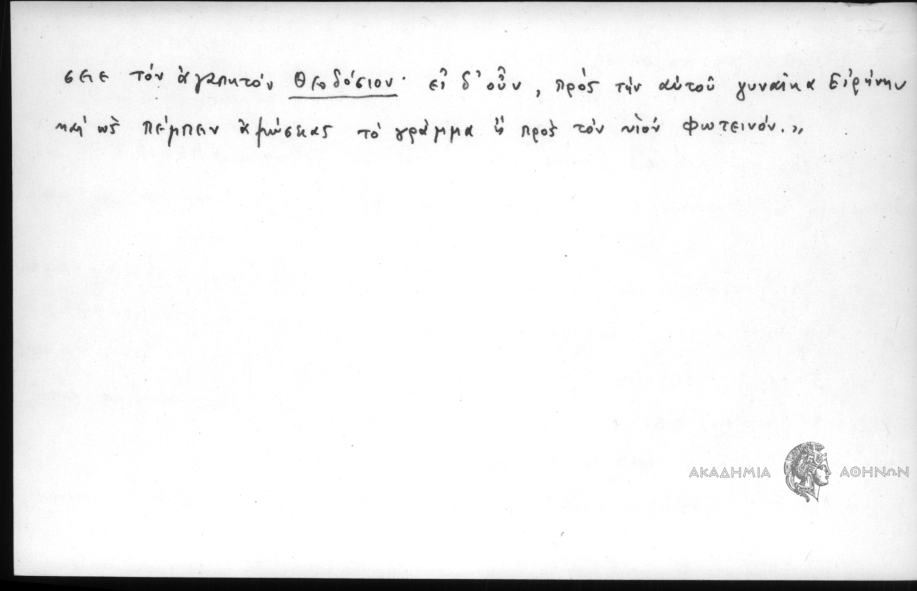 σειε τὸν ἀγαπητὸν Θεοδόσιον· εἰ δ' οὖν, πρὸς τὴν αὐτοῦ γυναῖκα Εἰρήνην
καὶ ὡς πέμπειν τὸ γράμμα ἢ πρὸς τὸν υἱὸν Φωτεινόν.»
ΑΚΑΔΗΜΙΑ ΑΘΗΝΩΝ